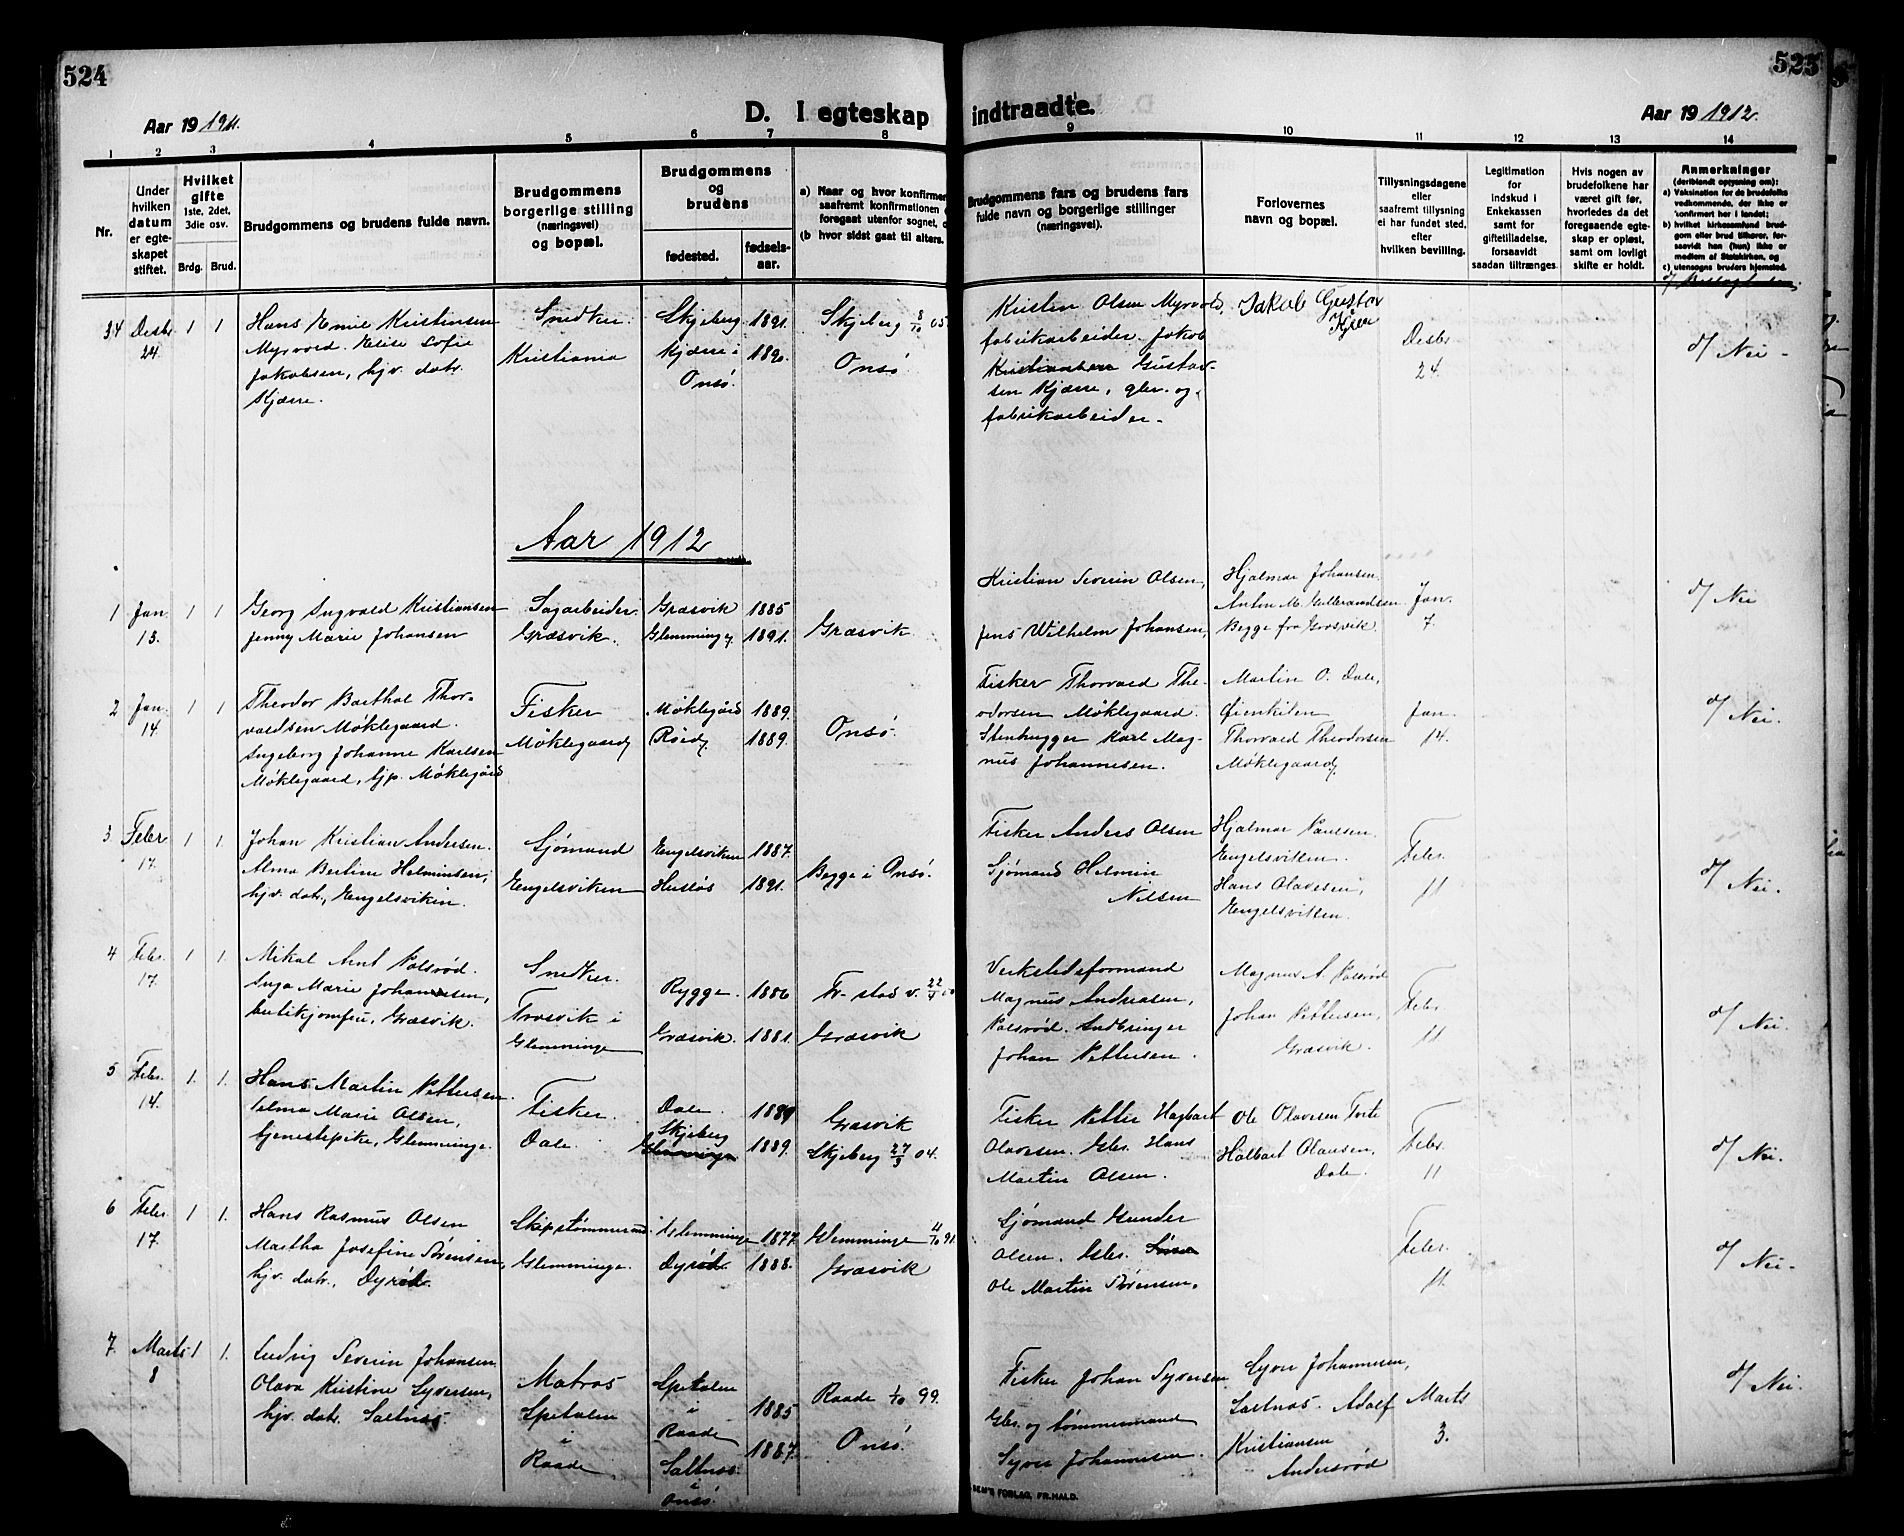 524
525
D. I egteskap indtraadte.
Aar 19 1911.
Aar 19 1912.
1 2 3 4 5 6 7 8 9 10 11 12 13 14
Nr.
Under
hvilken
datum
er egte-
skapet
stiftet.
Hvilket
gifte
1ste, 2det,
3die osv.
Brdg. Brud.
Brudgommens og brudens fulde navn.
Brudgommens
borgerlige stilling
(næringsvei)
og bopæl.
Brudgommens
og
brudens
fødested.
fødsels-
aar.
a) Naar og hvor konfirmer
saafremt konfirmationen
foregaat utenfor sognet,
(b hvor sidst gaat til alters.
Brudgommens fars og brudens fars
fulde navn og borgerlige stillinger
(næringsvei).
Forlovernes
navn og bopæl.
Tillysningsdagene
eller
saafremt tillysning
ei har fundet sted,
efter
hvilken bevilling.
Legitimation
for
Indskud i
Enkekassen
samt for
giftetilladelse,
forsaavidt
saadan tiltrænges
Hvis nogen av
brudefolkene har
været gift før,
hvorledes da det
foregaaende egte-
skap er opløst,
samt om lovligt
skifte er holdt.
Anmerkninger
(deriblandt oplysning om):
a) Vaksination for de brudefolks
vedkommende, der ikke er
konfirmert her i landet;
b) hvilket kirkesamfund brud-
gom eller brud tilhører, for-
saavidt han (hun) ikke er
medlem af Statskirken, og
c) utensogns bruders hjemsted.
d/ Beslægtedes
34 Desbr 24 1 1
Hans Emil Kristiansen
Myrvold. Elise Sofie
Jakobsen, hjv. datr.
Kjære.
Snedker
Kristiania
Skjeberg 1891.
Kjære i 1890.
Onsø.
Skjeberg 8/10 05
Onsø
Kristen Olsen Myrvold,
fabrikarbeider. Jakob
Kristiansen Gustav-
sen Kjære, glev. og
fabrikarbeider.
Jakob Gustav
Kjær
Desbr.
24.
d/ Nei -
Aar 1912
1 Jan 13. 1 1
Georg Ingvald Kristiansen
Jenny Marie Johansen
Sagarbeider.
Græsvik.
Græsvik 1885
Glemminge 1891.
Græsvik
Kristian Severin Olsen,
Jens Wilhelm Johansen,
Hjalmar Johansen
Anton M. Gulbrandsen
Begge fra Græsvik.
Jan.
7.
d/ Nei
2 Jan. 14 1 1
Theodor Barthol Thor-
valdsen Møklegaard.
Ingeborg Johanne Karlsen
Møklegaard, tjp. Møklegård
Fisker
Møklegaard
Møklegård 1889.
Røed 1889.
Onsø.
Fisker Thorvald The-
odorsen Møklegaard.
Stenhugger Karl Mag-
nus Johannesen.
Martin O. Dale,
Øienkilen
Thorvald Theodorsen
Møklegaard
Jan.
14.
d/ Nei.
3 Febr 17. 1 1.
Johan Kristian Andersen.
Alma Bertine Helminsen,
hjv. datr., Engelsviken.
Sjømand
Engelsviken
Engelsviken 1887.
Husløs 1891.
Begge i Onsø.
Fisker Anders Olsen
Sjømand Helmin
Nilsen
Hjalmar Paulsen.
Engelsviken.
Hans Olavesen,
Engelsviken.
Febr.
11
d/ Nei.
4 Febr. 17. 1 1.
Mikal Arnt Palsrød.
Inga Marie Johannesen,
butikjomfru, Græsvik.
Snedker.
Trosvik i
Glemminge
Rygge. 1886
Græsvik. 1881.
Fr-stad v. 22/4 00
Græsvik
Verkstedsformand
Magnus Andreasen,
Palsrød. Indbringer
Johan Pettersen.
Magnus A. Palsrød
Johan Pettersen,
Græsvik.
Febr.
11
d/ Nei.
5 Febr. 14. 1. 1.
Hans Martin Pettersen.
Selma Marie Olsen,
tjenestepike, Glemminge.
Fisker.
Dale.
Dale. 1889
Skjeberg
Glemminge 1889.
Græsvik
Skjeberg 27/3 04.
Fisker Petter Hagbart
Olavesen. Gbr. Hans
Martin Olsen.
Ole Olavesen Torte
Halbart Olausen,
Dale.
Febr.
11
d/ Nei.
6 Febr. 17. 1 1.
Hans Rasmus Olsen
Martha Josefine Sørensen,
hjv. datr., Dyrød.
Skipstømmermand
Glemminge.
Glemminge 1877.
Dyrød 1888.
Glemminge 4/10 91.
Græsvik
Sjømand Gunder
Olsen. Gbr.
Ole Martin Sørensen.
Febr.
11.
d/ Nei.
7. Marts 8 1 1.
Ludvig Severin Johansen
Olava Kristine Syversen,
hjv. datr. Saltnes
Matros
Spetalen
i
Raade
Spetalen
i
Raade 1885
Saltnes 1887.
i
Onsø.
Raade 1/10 99.
Onsø.
Fisker Johan Syversen
Gbr. og tømmermand
Syver Johannesen.
Syver Johannesen,
Saltnes. Adolf
Kristiansen
Andersrød
Marts
3.
d/ Nei.
FORLAG, FR.HALD.